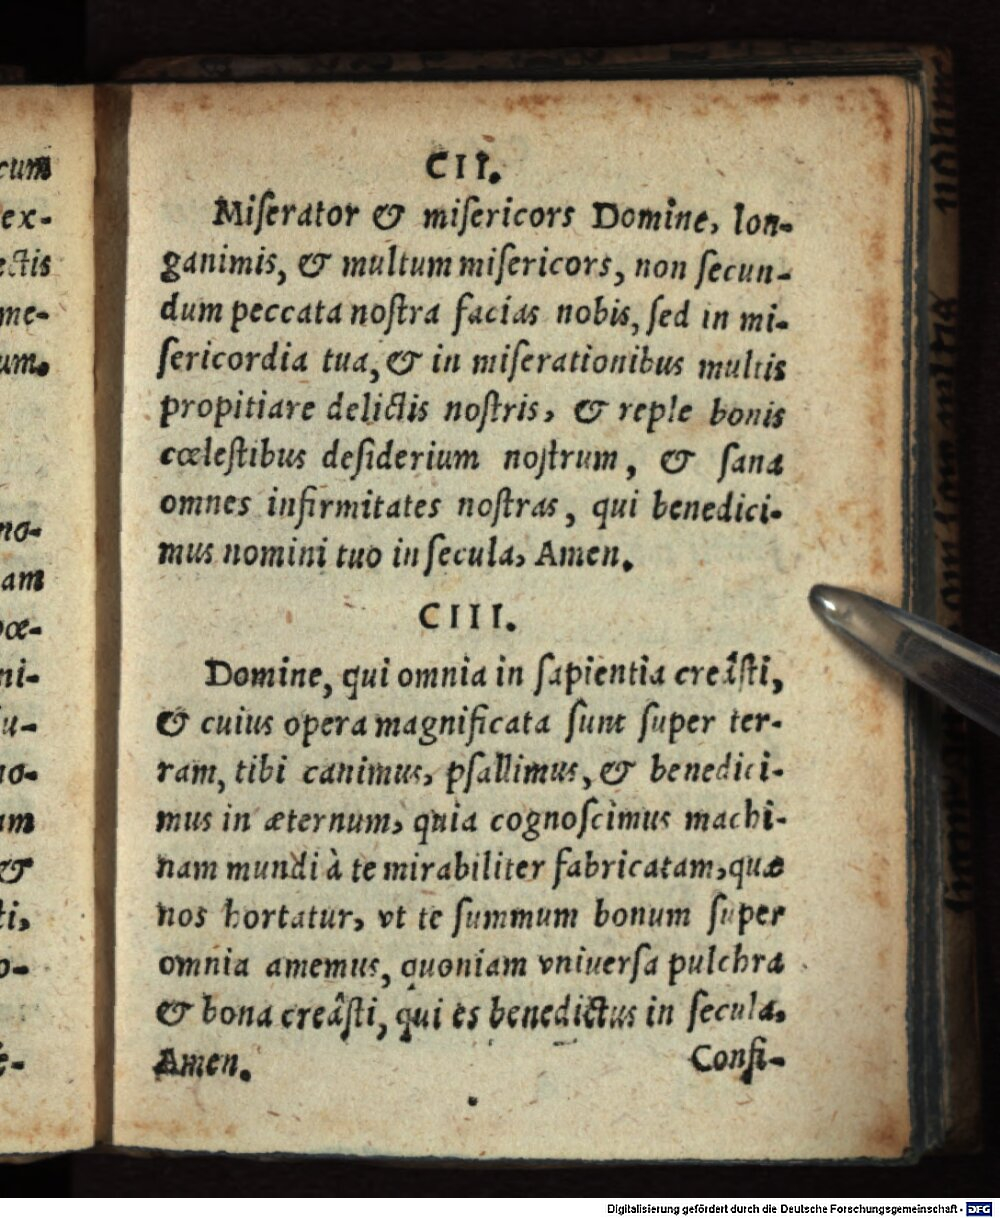 cum
ex-
ectis
me-
um.
no-
am
pœ-
ni-
u-
no-
um
&
ti,
o-
e-
CII.
Miſerator & miſericors Domine, lon-
ganimis, & multum miſericors, non ſecun-
dum peccata noſtra facias nobis, ſed in mi-
ſericordia tua, & in miſerationibus multis
propitiare delictis noſtris, & reple bonis
cœleſtibus deſiderium noſtrum, & ſana
omnes infirmitates noſtras, qui benedici-
mus nomini tuo in ſecula, Amen.
CIII.
Domine, qui omnia in ſapientia creâſti,
& cuius opera magnificata ſunt ſuper ter-
ram, tibi canimus, pſallimus, & benedici-
mus in æternum, quia cognoſcimus machi-
nam mundi à te mirabiliter fabricatam, quæ
nos hortatur, vt te ſummum bonum ſuper
omnia amemus, quoniam vniuerſa pulchra
& bona creâſti, qui es benedictus in ſecula,
Amen.
Confi-
Digitalisierung gefördert durch die Deutsche Forschungsgemeinschaft - DFG